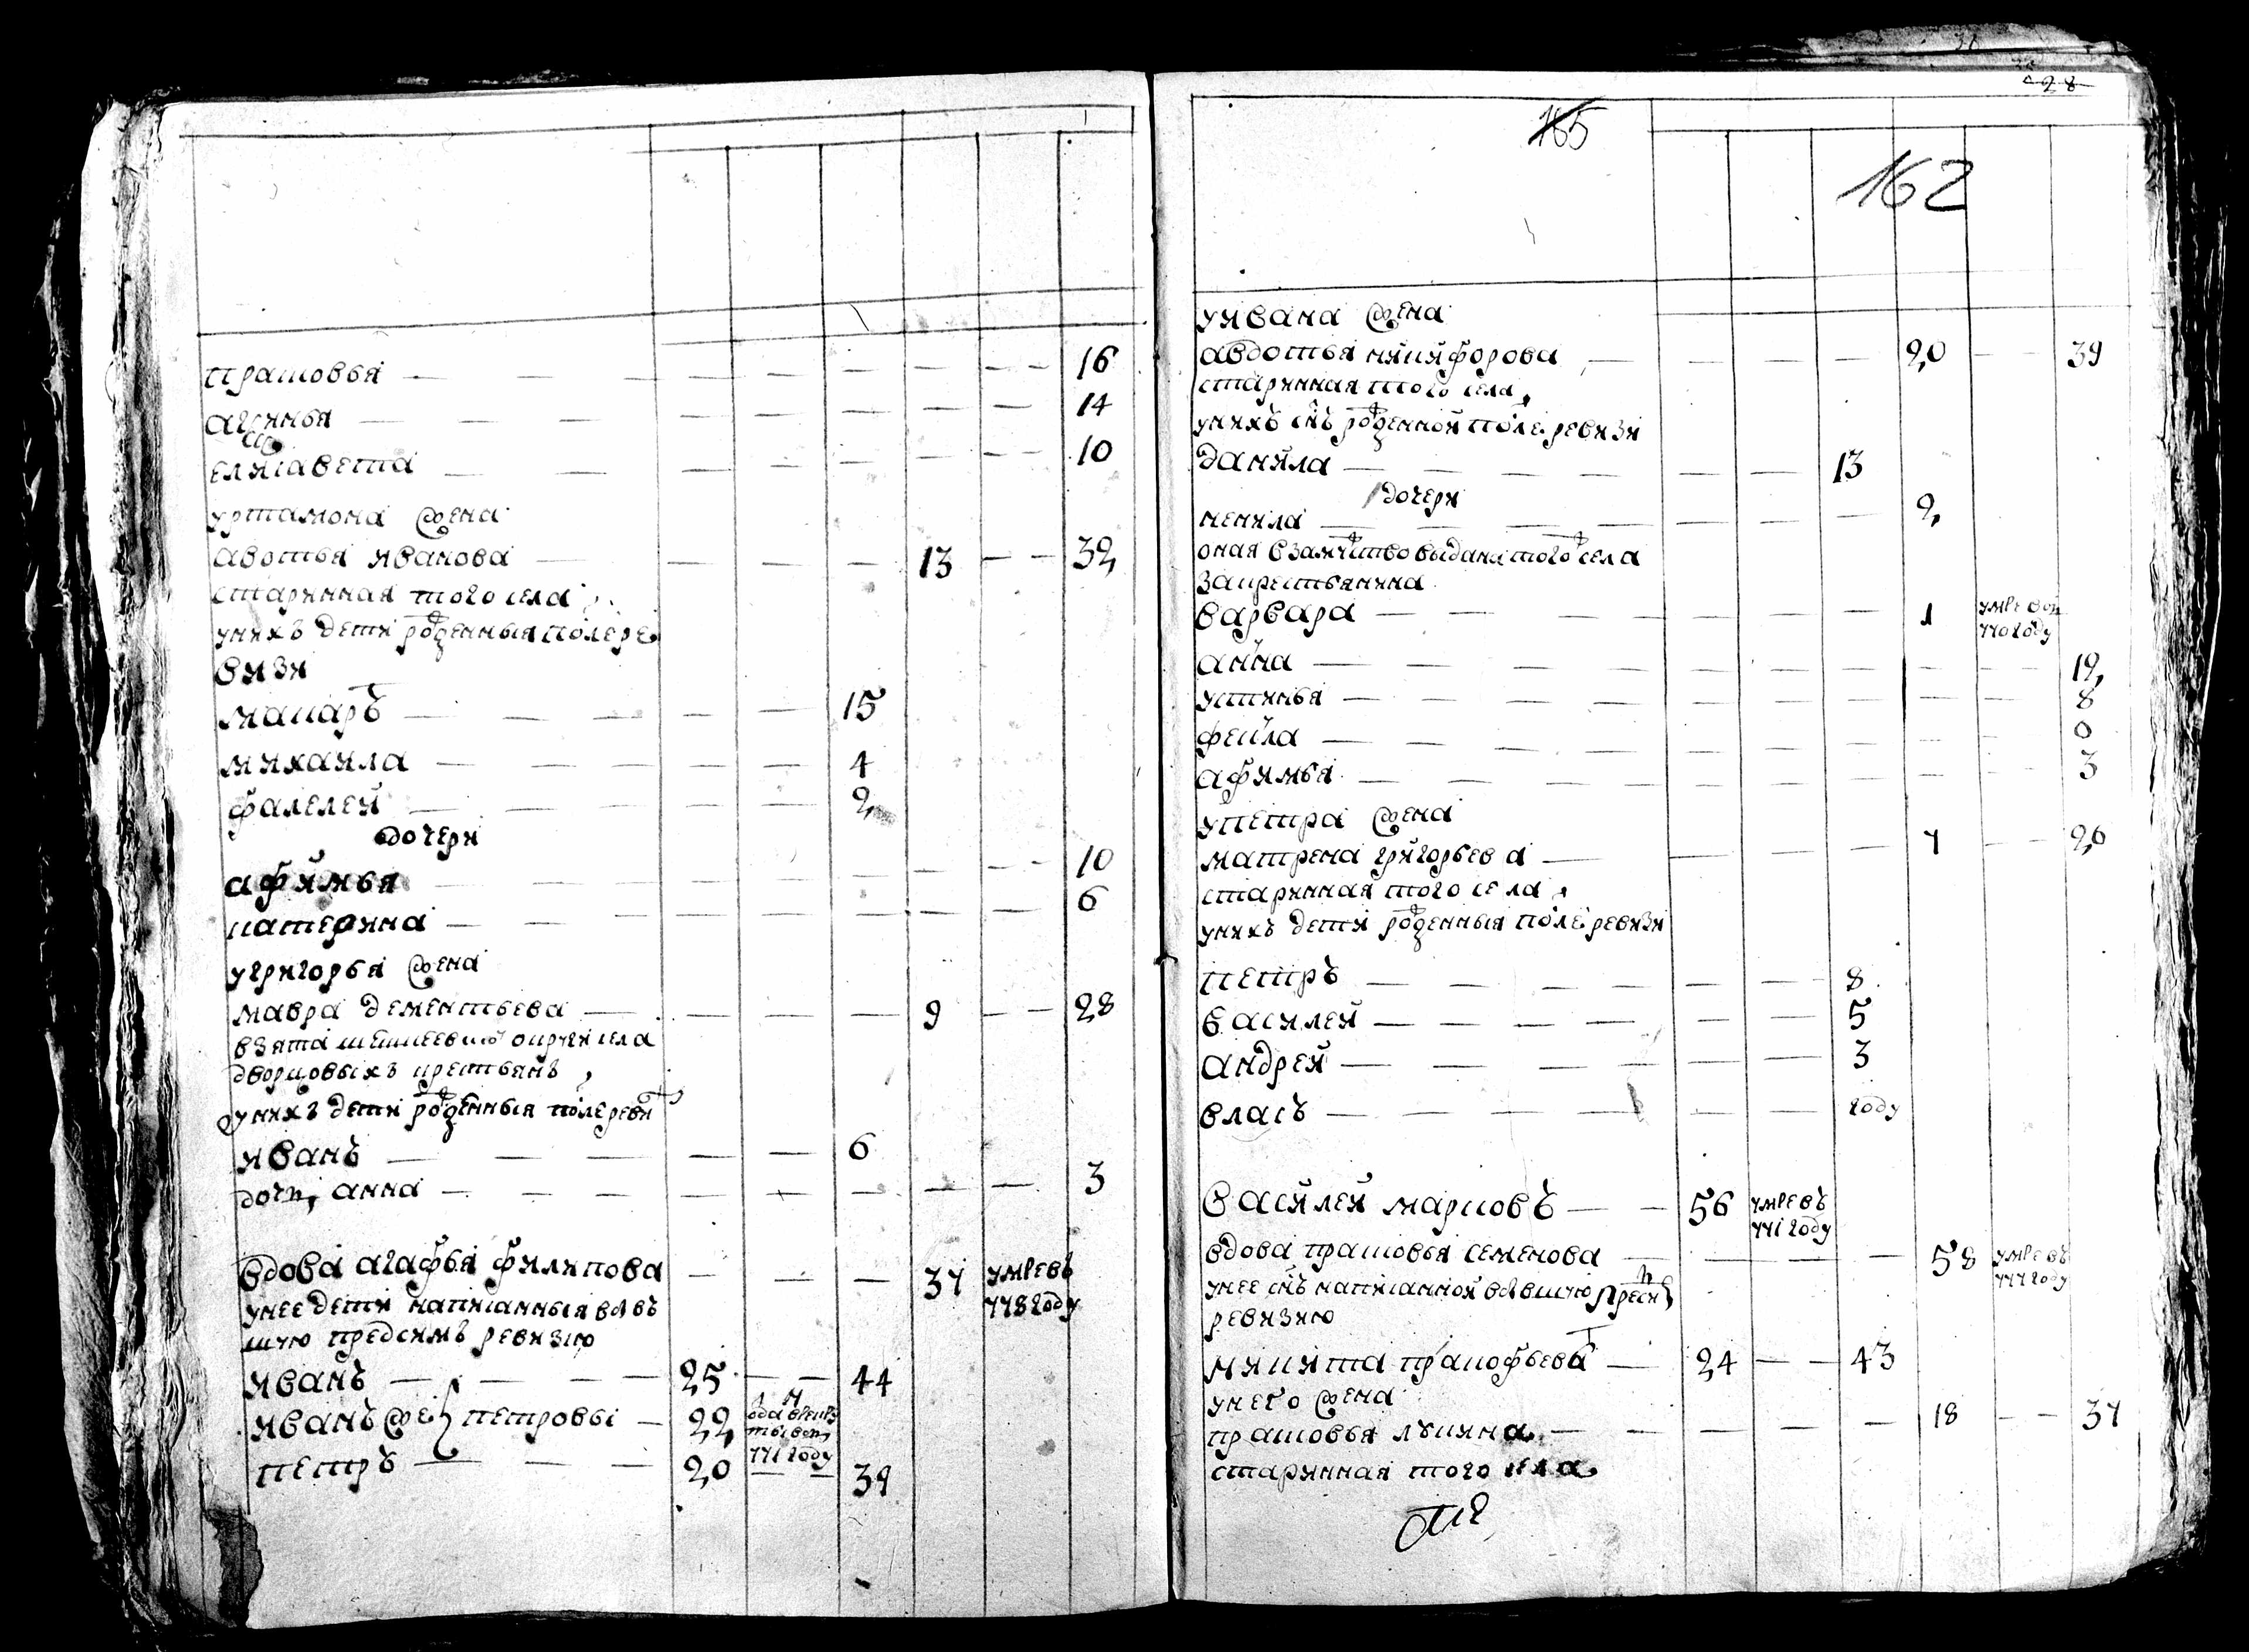 прасковья — — — — — — — — 16
агринья — — — — — — — — 14
елисавета — — — — — — — — 10
у ртамона жена
авотья иванова — — — — 13 — — 32
старинная того села
у них дети рожденныя после ре
визи
макаръ — — — — — 15
михаила — — — — — 4
фалелей — — — — — 2
дочери
афимья — — — — — — — — 10
катерина — — — — — — — — 6
у григорья жена
мавра дементьева — — — — 9 — — 28
взята
дворцовыхъ крестьянъ
у нихъ дети рожденныя после реви
иванъ — — — — — 6
дочь анна — — — — — — — — 3
вдова агафья филипова — — — 37 умре въ
778 году
у нее дети написанныя въ бывъ
шую пред симъ ревизию
иванъ — — — — 25 — — 44
иванъ же } петровы — 22
771 году
петръ — — — 20 — — 39
28
165
162
у ивана жена
авдотья никифорова — — — — 20 — — 39
старинная того села
у нихъ сынъ рожденной после ревизи
данила — — — — — — 13
дочери
ненила — — — — — — — 2
оная в замужство выдана того ж села
за крестьянина
варвара — — — — — — — 1 умре во
770 году
анна — — — — — — — — — 12
устинья — — — — — — — — — 8
фекла — — — — — — — — — 0
афимья — — — — — — — — — 3
у петра жена
матрена григорьева — — — — 7 — — 26
старинная того села
у нихъ дети рожденныя после ревизи
петръ — — — — — — 8
василей — — — — — — 5
андрей — — — — — — 3
власъ — — — — — — году
василей марковъ — — 56 умре въ
771 году
вдова прасковья семенова — — — — 58 умре въ
777 году
у нее сынъ написанной въ бывшую пред сим
ревизию
никита пракофьевъ — 24 — — 43
у него жена
прасковья лукина — — — — 18 — — 37
старинная того села